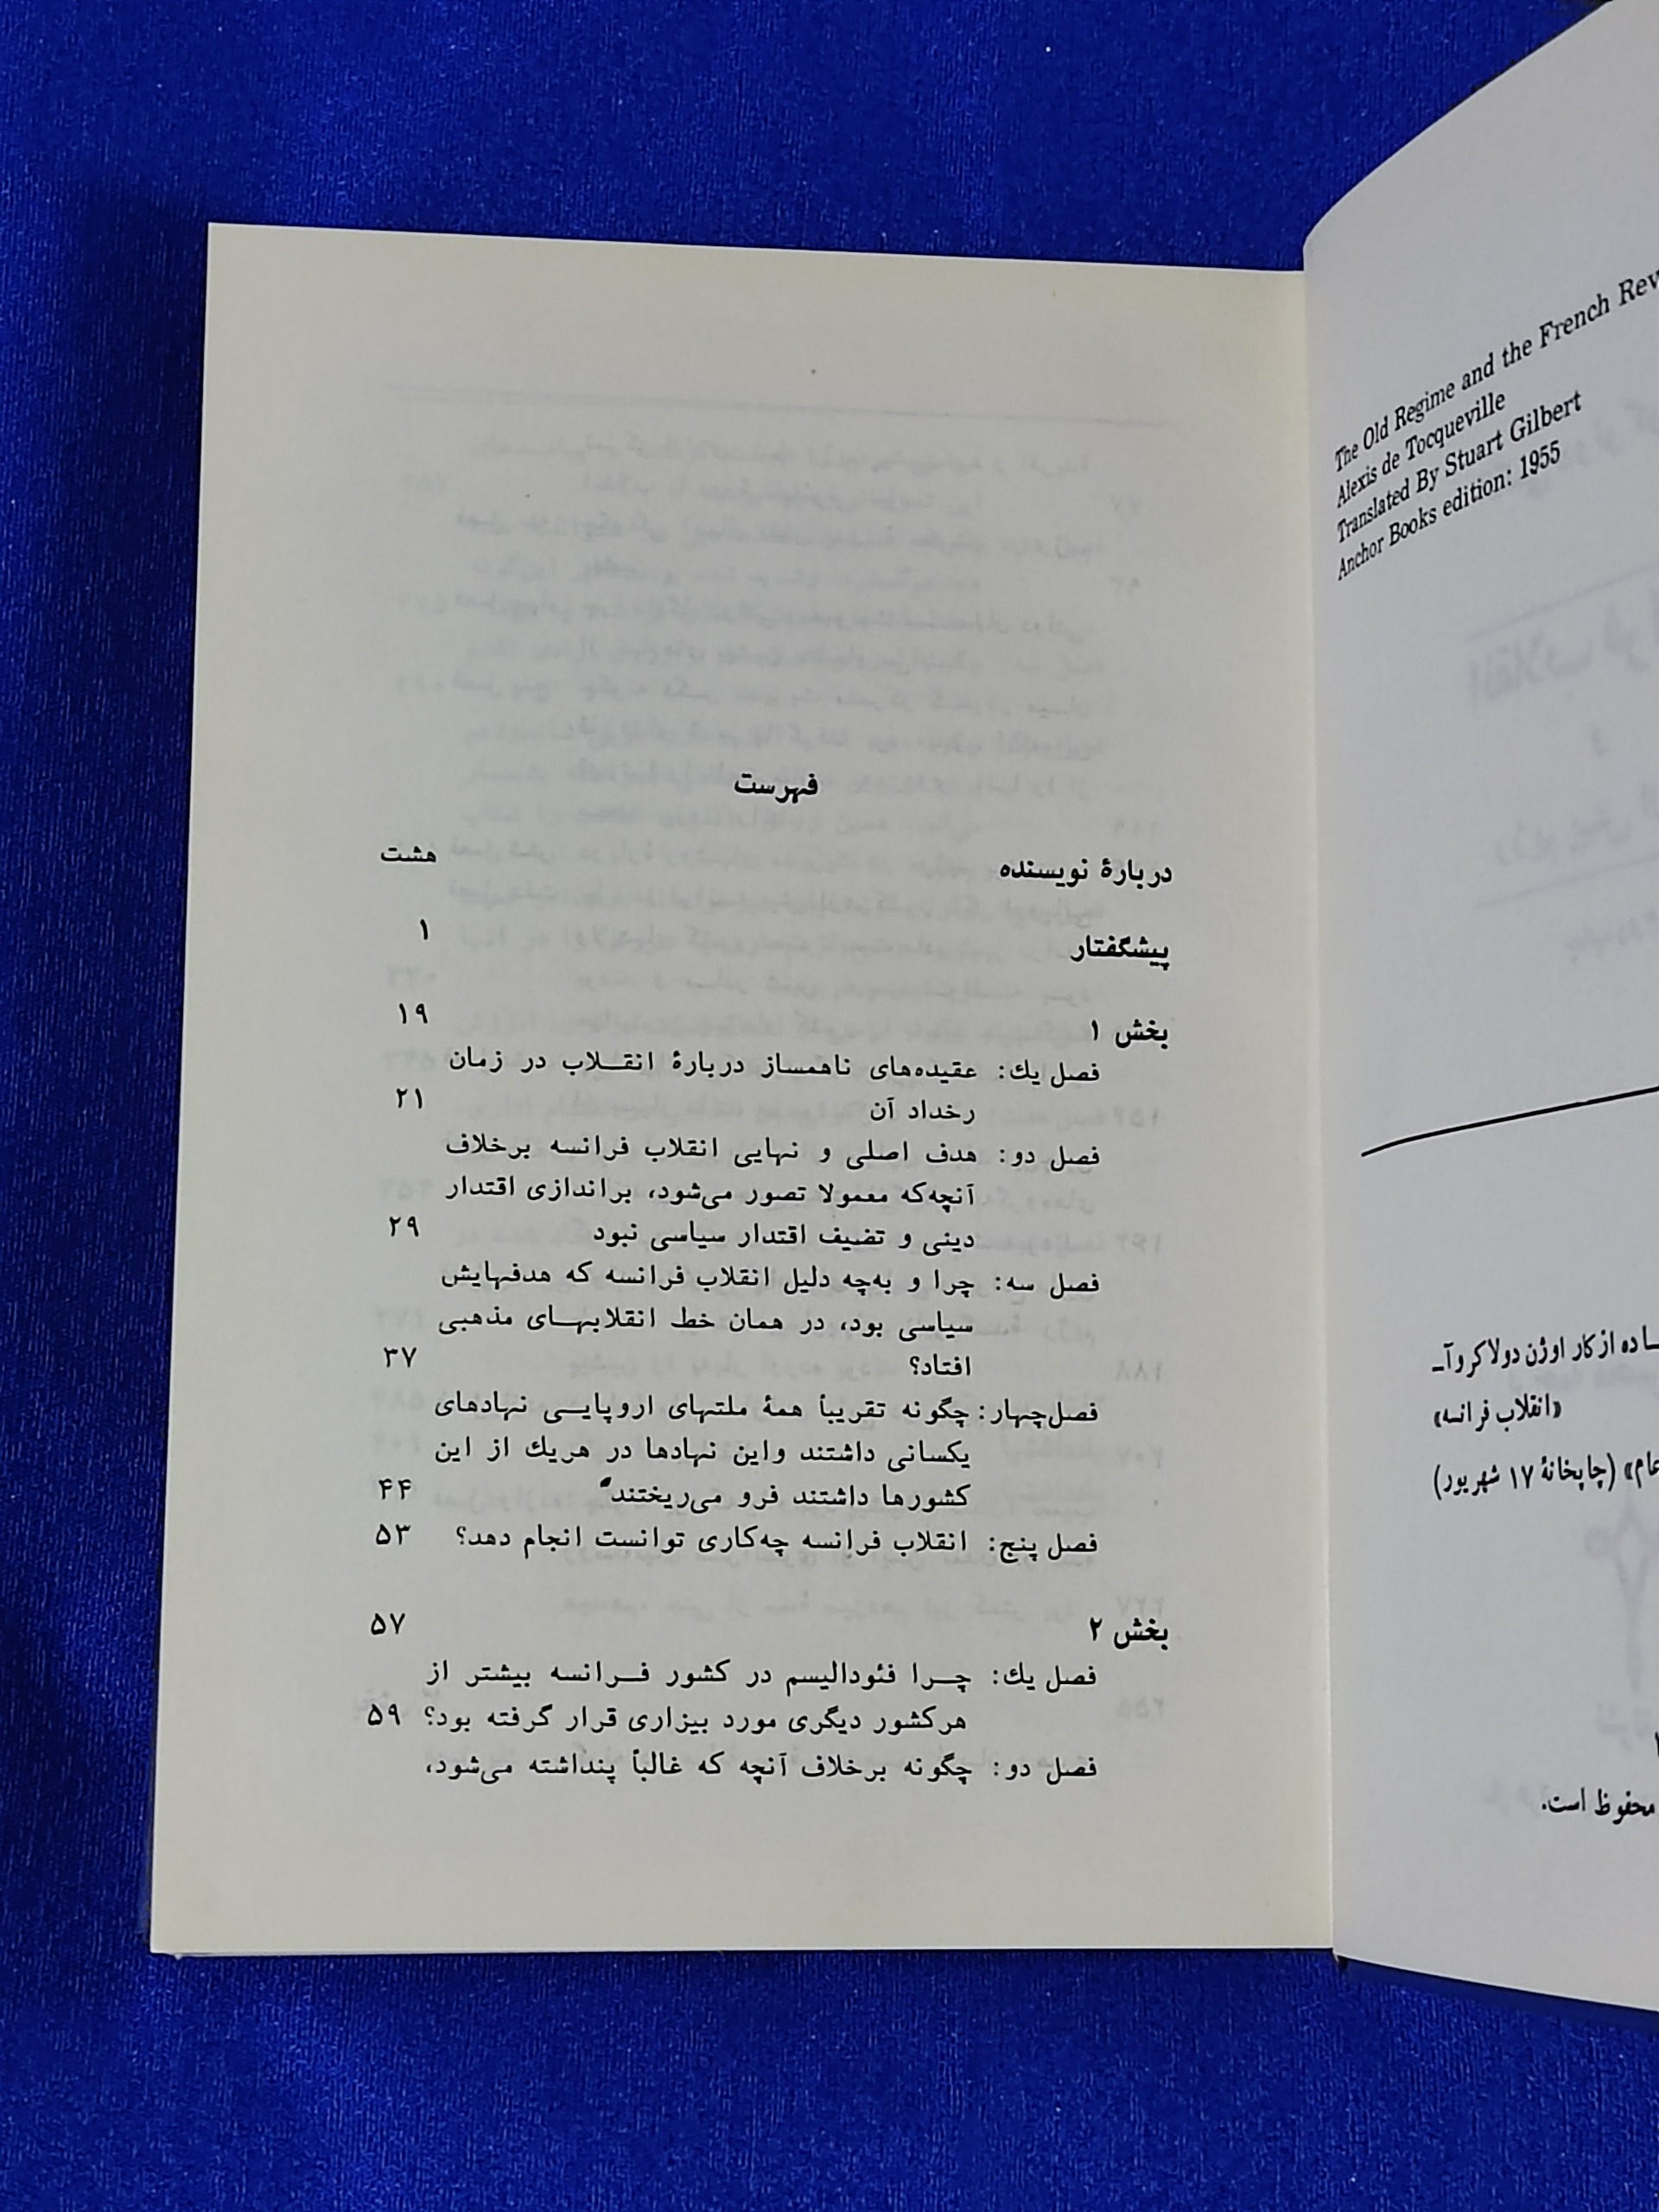 فهرست
دربارهٔ نویسنده هشت
پیشگفتار ۱
بخش ۱ ۱۹
فصل یك: عقیده‌های ناهمساز دربارهٔ انقـلاب در زمان
رخداد آن ۲۱
فصل دو: هدف اصلی و نهایی انقلاب فرانسه برخلاف
آنچه‌که معمولا تصور می‌شود، براندازی اقتدار
دینی و تضیف اقتدار سیاسی نبود ۲۹
فصل سه: چرا و به‌چه دلیل انقلاب فرانسه که هدفهایش
سیاسی بود، در همان خط انقلابهـای مذهبی
افتاد؟ ۳۷
فصل‌چهار: چگونه تقریباً همهٔ ملتهای اروپایـی نهادهای
یکسانی داشتند واین نهادها در هریك از این
کشورها داشتند فرو می‌ریختند ۴۴
فصل پنج: انقلاب فرانسه چه‌کاری توانست انجام دهد؟ ۵۳
بخش ۲ ۵۷
فصل یك: چـرا فئودالیسم در کشور فـرانسه بیشتر از
هرکشور دیگری مورد بیزاری قرار گرفته بود؟ ۵۹
فصل دو: چگونه برخلاف آنچه که غالباً پنداشته می‌شود،
The Old Regime and the French
Alexis de Tocqueville
Translated By Stuart Gilbert
Anchor Books edition: 1955
از کار اوژن دولاکروآـ
«انقلاب فرانسه»
(چاپخانهٔ ۱۷ شهریور)
محفوظ است.